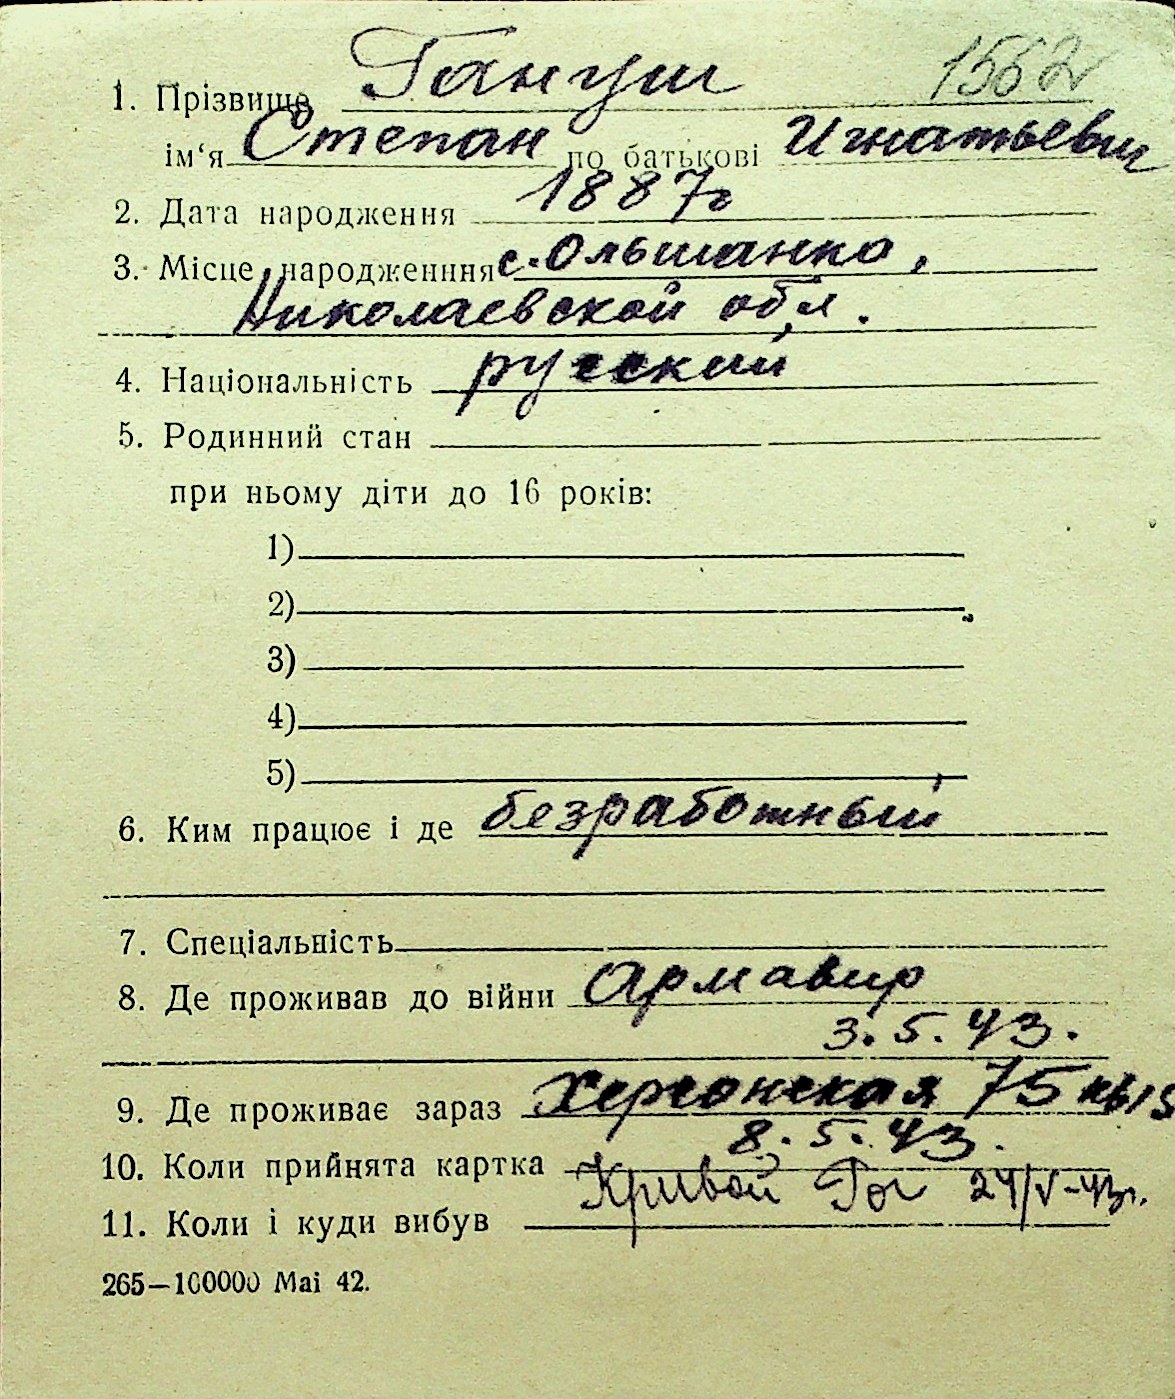 1562
1. Прізвище Гануш
ім‘я Степан по батькові Игнатьевич
2. Дата народження 1887г
3. Місце народженння с. Ольшанка,
Николаевской обл.
4. Національність русский
5. Родинний стан
при ньому діти до 16 років:
1)
2)
3)
4)
5)
6. Ким працює і де безработный
7. Спеціальність
8. Де проживав до війни Армавир
3. 5. 43.
9. Де проживає зараз Херсонская 75 кв 15
10. Коли прийнята картка 8. 5. 43.
11. Коли і куди вибув Кривой Рог 24/V-43г.
265—100000 Mai 42.